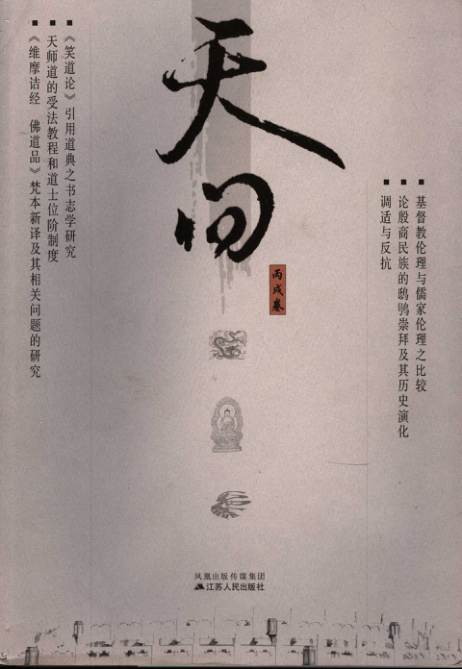 天问
丙戌卷
■基督教伦理与儒家伦理之比较
■论殷商民族的鸱鸮崇拜及其历史演化
■调适与反抗
■《笑道论》引用道典之书志学研究
■天师道的受法教程和道士位阶制度
■《维摩诘经 佛道品》梵本新译及其相关问题的研究
凤凰出版传媒集团
江苏人民出版社